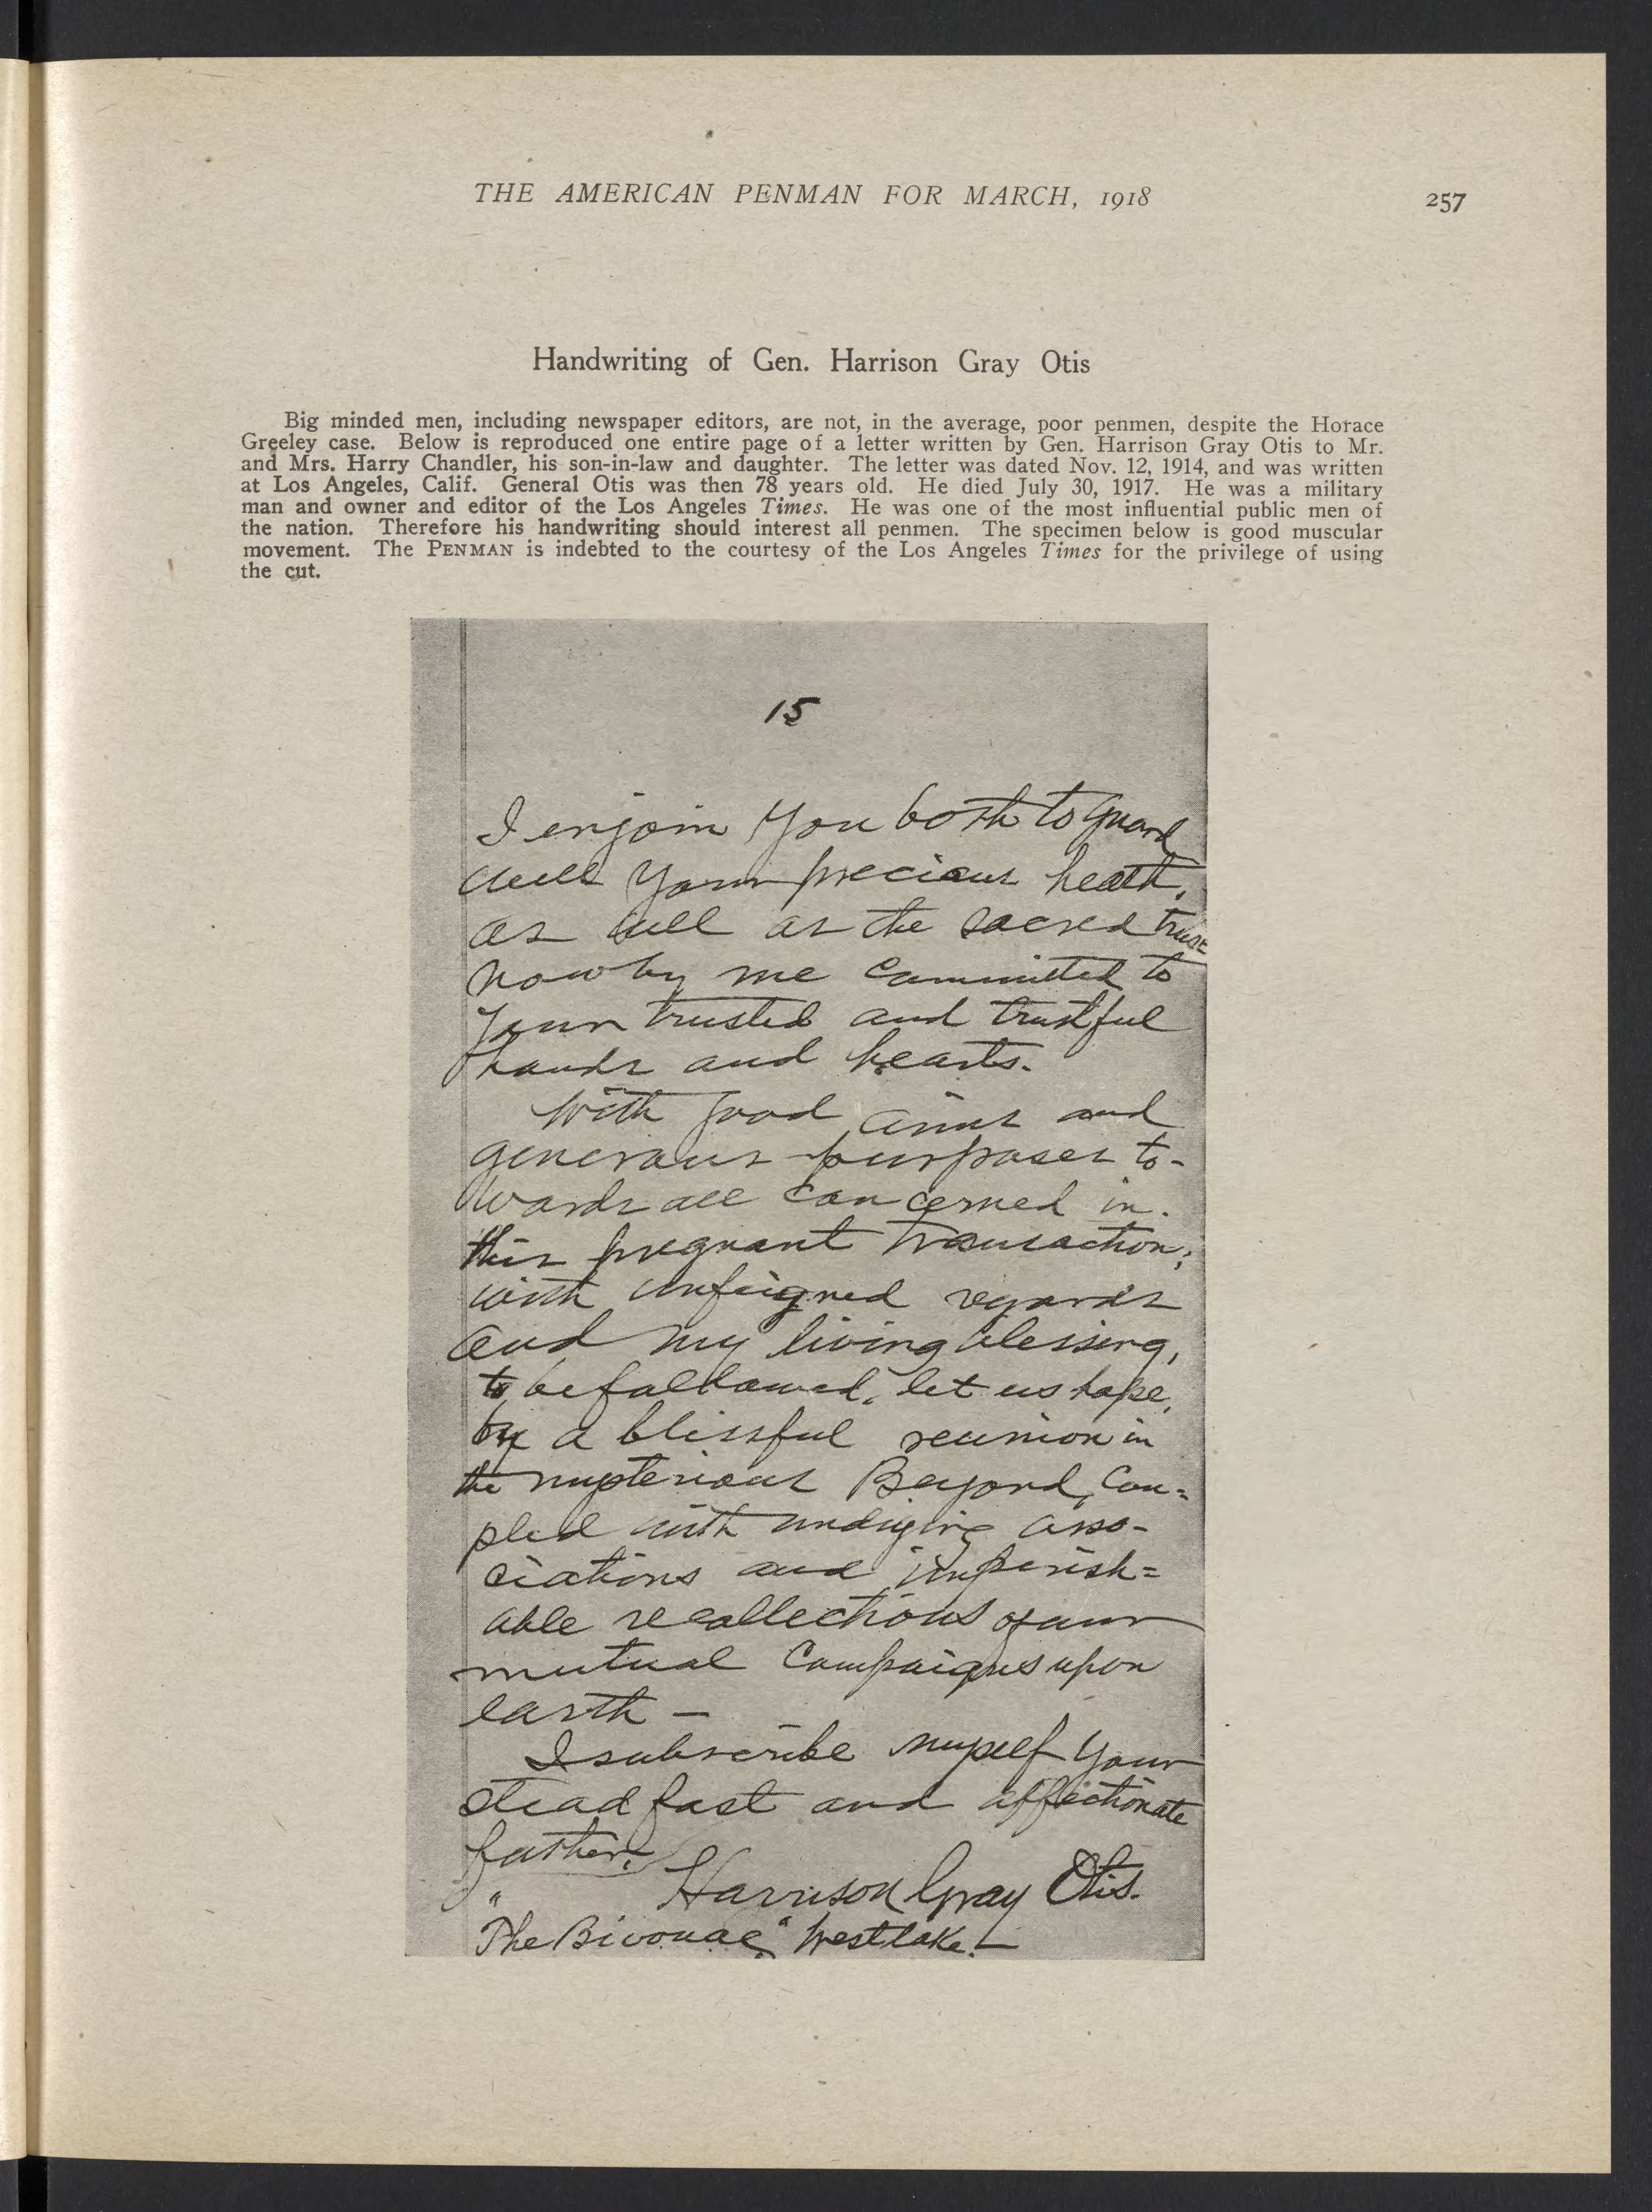 THE AMERICAN PENMAN FOR MARCH, 1918
257
Handwriting of Gen. Harrison Gray Otis
Big minded men, including newspaper editors, are not, in the average, poor penmen, despite the Horace
Greeley case. Below is reproduced one entire page of a letter written by Gen. Harrison Gray Otis to Mr.
and Mrs. Harry Chandler, his son-in-law and daughter. The letter was dated Nov. 12, 1914, and was written
at Los Angeles, Calif. General Otis was then 78 years old. He died July 30, 1917. He was a military
man and owner and editor of the Los Angeles Times. He was one of the most influential public men of
the nation. Therefore his handwriting should interest all penmen. The specimen below is good muscular
movement. The PENMAN is indebted to the courtesy of the Los Angeles Times for the privilege of using
the cut.
15
I enjoin you both to guard
well your precious health,
as well as the sacred trust
now by me committed to
your trusted and trustful
hands and hearts.
With good aims and
generous purposes to-
wards all concerned in
this pregnant transaction;
with unfeigned regards
and my living blessing,
to be followed, let us hope,
by a blissful reunion in
the mysterious Beyond, cou=
pled with undying asso-
ciations and imperish=
able recollections of our
mutual campaigns upon
earth —
I subscribe myself your
steadfast and affectionate
father,
Harrison Gray Otis.
"The Bivouac," Westlake. —